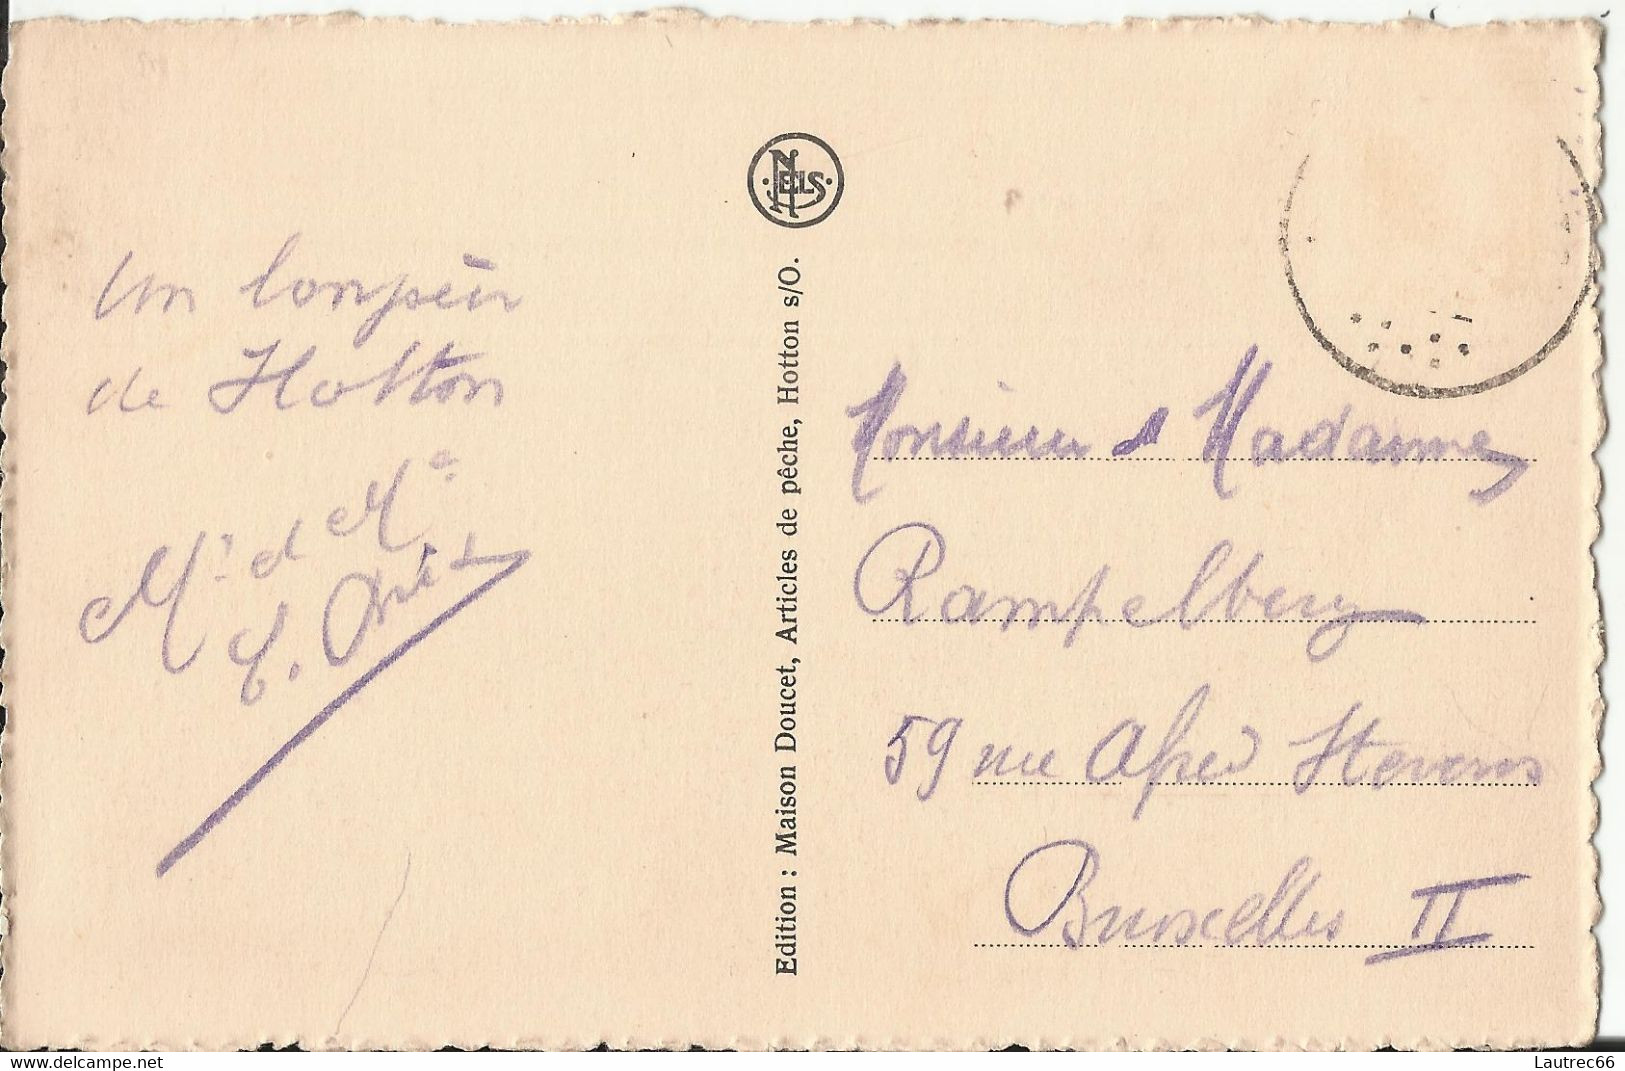 Un
de Hotton
Mr et Me
NELS
Edition : Maison Doucet, Articles de pêche, Hotton s/O.
Monsieur & Madame,
Rampelberg
59 rue Alfred Stevens
Bruxelles II
www.delcampe.net
Lautrec66